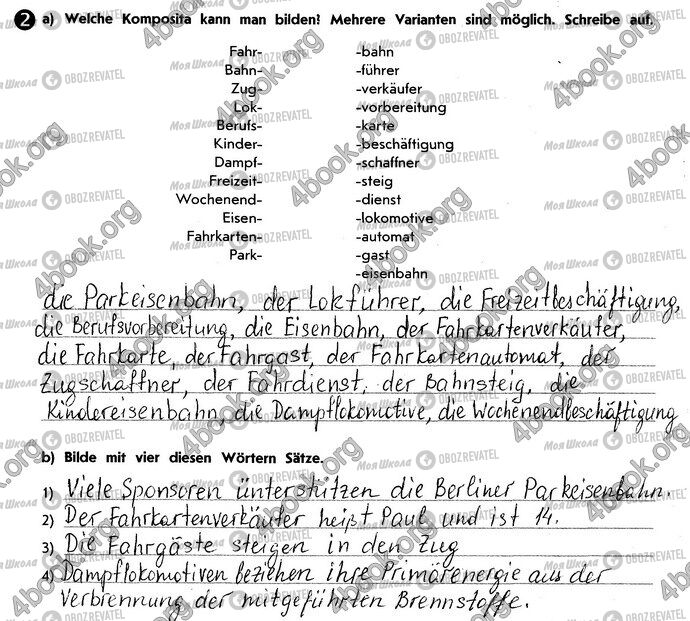 2 a) Welche Komposita kann man bilden? Mehrere Varianten sind möglich. Schreibe auf.
Fahr- -bahn
Bahn- -führer
Zug- -verkäufer
Lok- -vorbereitung
Berufs- -karte
Kinder- -beschäftigung
Dampf- -schaffner
Freizeit- -steig
Wochenend- -dienst
Eisen- -lokomotive
Fahrkarten- -automat
Park- -gast
-eisenbahn
die Parkeisenbahn, der Lokführer, die Freizeitbeschäftigung,
die Berufsvorbereitung, die Eisenbahn, der Fahrkartenverkäufer,
die Fahrkarte, der Fahrgast, der Fahrkartenautomat, der
Zugschaffner, der Fahrdienst, der Bahnsteig, die
Kindereisenbahn, die Dampflokomotive, die Wochenendbeschäftigung
b) Bilde mit vier diesen Wörtern Sätze.
1) Viele Sponsoren ünterstützen die Berliner Parkeisenbahn.
2) Der Fahrkartenverkäufer heißt Paul und ist 14.
3) Die Fahrgäste steigen in den Zug
4) Dampflokomotiven beziehen ihre Primärenergie aus der
Verbrennung der mitgeführten Brennstoffe.
4book.org
Моя Школа OBOZREVATEL